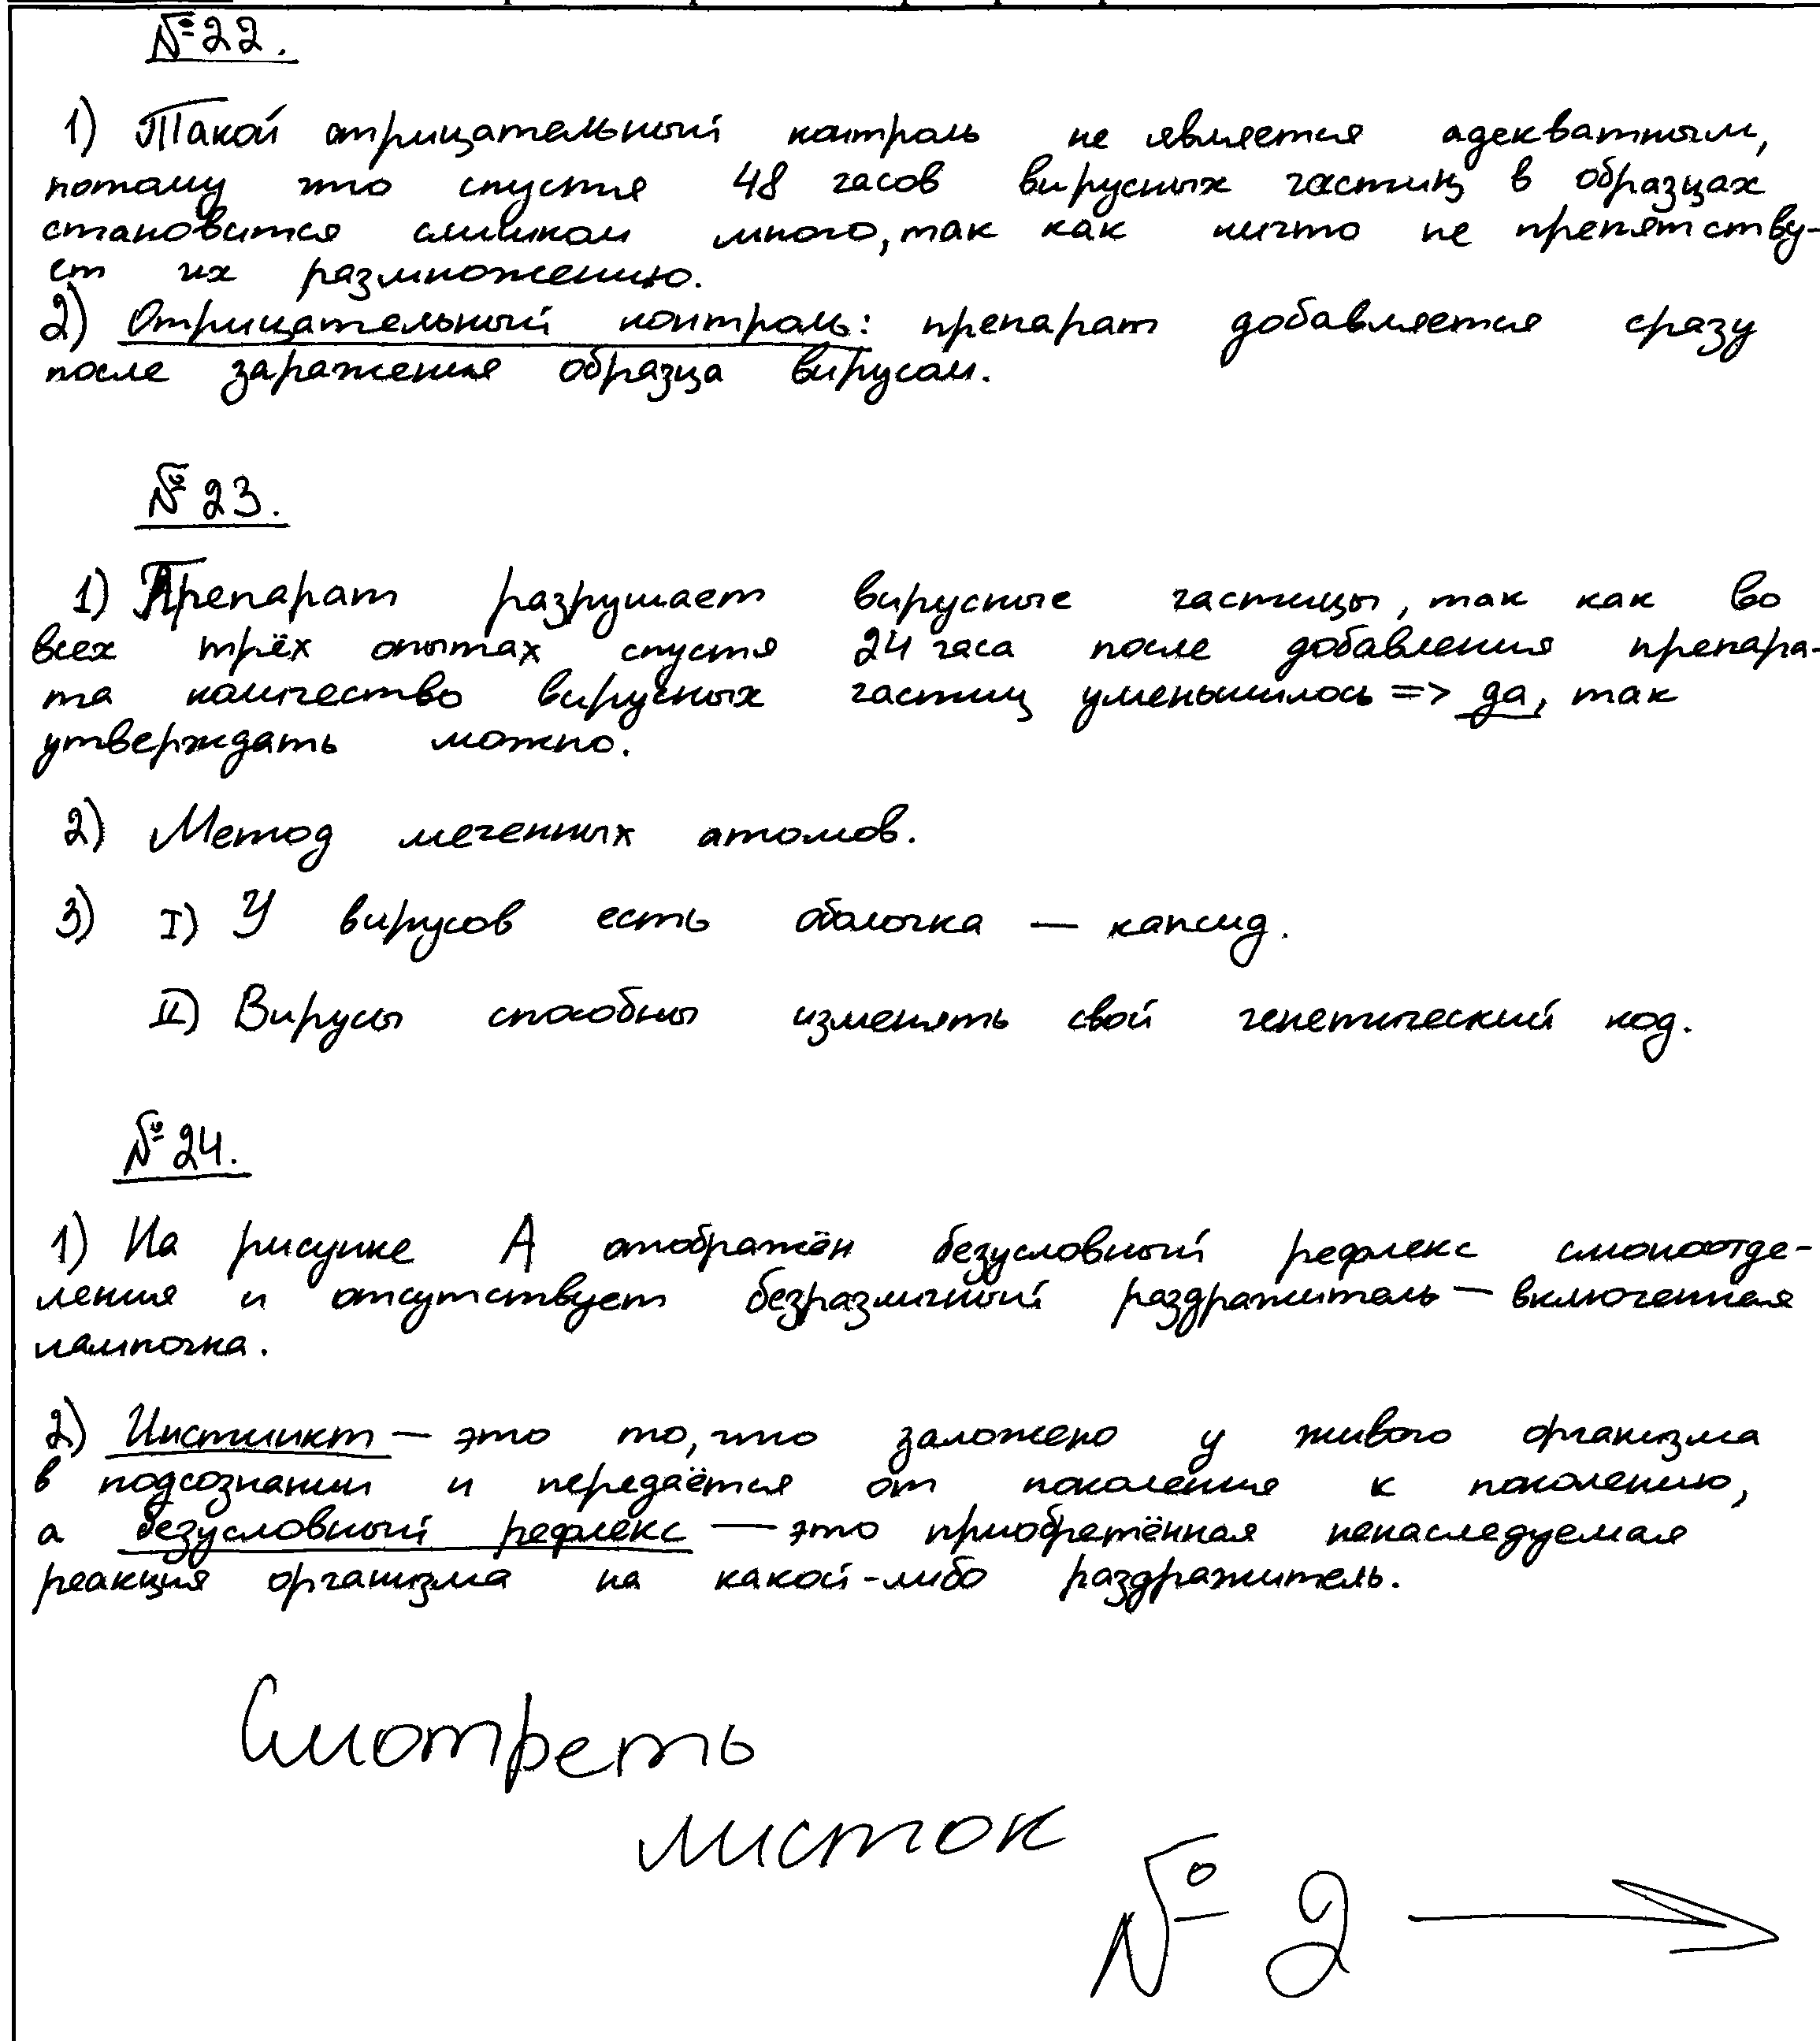 №22.
1) Такой отрицательный контроль не является адекватным,
потому что спустя 48 часов вирусных частиц в образцах
становится слишком много, так как ничто не препятству-
ет их размножению.
2) Отрицательный контроль: препарат добавляется сразу
после заражения образца вирусом.
№23.
1) Препарат разрушает вирусные частицы, так как во
всех трёх опытах спустя 24 часа после добавления препара-
та количество вирусных частиц уменьшилось => да, так
утверждать можно.
2) Метод меченных атомов.
3) I) У вирусов есть оболочка — капсид.
II) Вирусы способны изменять свой генетический код.
№24.
1) На рисунке А отображён безусловный рефлекс слюноотде-
ления и отсутствует безразличный раздражитель — включенная
лампочка.
2) Инстинкт — это то, что заложено у живого организма
в подсознании и передаётся от поколения к поколению,
а безусловный рефлекс — это приобретённая ненаследуемая
реакция организма на какой-либо раздражитель.
Смотреть
листок
№ 2 →